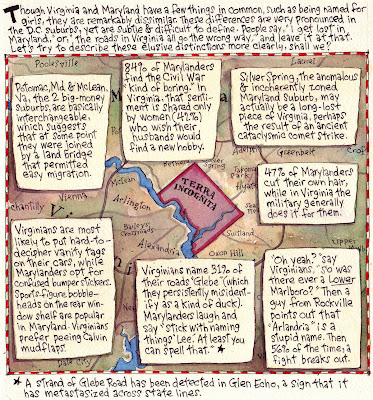 Though Virginia and Maryland have a few things in common, such as being named for
girls, they are remarkably dissimilar. These differences are very pronounced in
the D.C. suburbs, yet are subtle & difficult to define. People say, "I get lost in
Maryland," or, "the roads in Virginia all go the wrong way," and leave it at that.
Let's try to describe these elusive distinctions more clearly, shall we?
Poolesville
Laurel
Potomac, Md. & McLean,
Va., the 2 big-money
suburbs, are basically
interchangeable,
which suggests
that at some point
they were joined
by a land bridge
that permitted
easy migration.
84% of Marylanders
find the Civil War
"kind of boring." In
Virginia, that senti-
ment is shared only
by women (42%)
who wish their
husbands would
find a new hobby.
Silver Spring, the anomalous
& incoherently zoned
Maryland suburb, may
actually be a long-lost
piece of Virginia, perhaps
the result of an ancient
cataclysmic comet strike.
Greenbelt
Croft
McLean
Vienna
Chantilly
Arlington
Bailey's
Crossroads
Alexandria
TERRA
INCOGNITA
Suitland
Oxon Hill
Upper
47% of Marylanders
cut their own hair,
while in Virginia the
military generally
does it for them.
Virginians are most
likely to put hard-to-
decipher vanity tags
on their cars, while
Marylanders opt for
confused bumper stickers.
Sports-figure bobble-
heads on the rear win-
dow shelf are popular
in Maryland. Virginians
prefer peeing Calvin
mudflaps.
Virginians name 31% of
their roads "Glebe" (which
they persistently misident-
ify as a kind of duck).
Marylanders laugh and
say "stick with naming
things 'Lee.' At least you
can spell that." *
"Oh yeah?" say
Virginians, "so was
there ever a Lower
Marlboro?" Then a
guy from Rockville
points out that
"Arlandria" is a
stupid name. Then
56% of the time, a
fight breaks out.
* A strand of Glebe Road has been detected in Glen Echo, a sign that it
has metastasized across state lines.